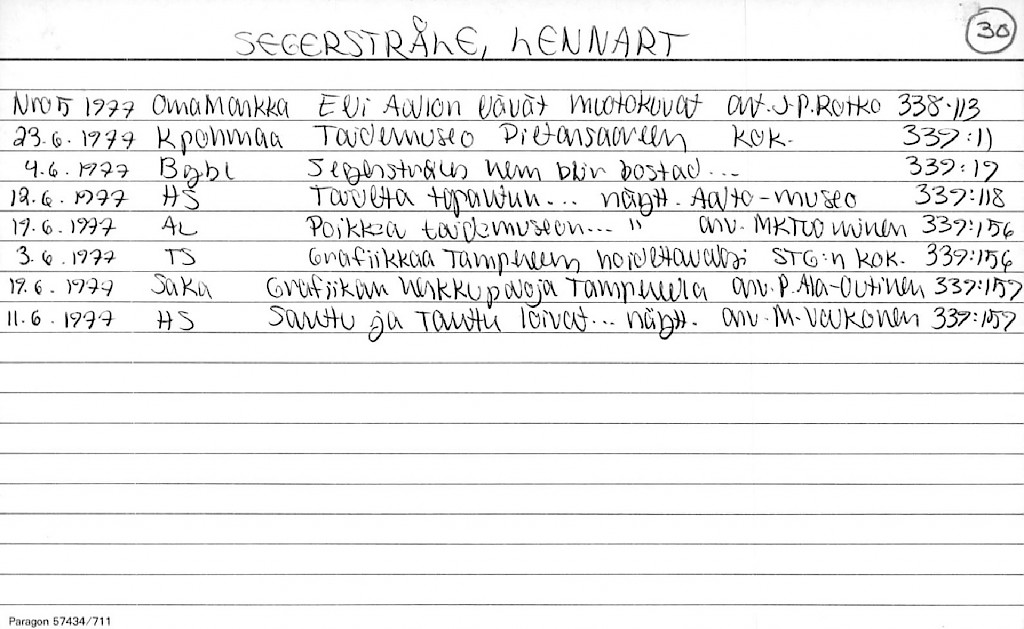 SEGERSTRÅLE, LENNART 30
Nro 5 1977 OmaMarkka Evi Aalion elävät muotokuvat art. J-P. Rotko 338:113
23.6.1977 Kpohmaa Taidemuseo Pietarsaareen kok. 339:11
4.6.1977 Bgbl Segerstråles hem blir bostad... 339:19
12.6.1977 HS Taidetta tapahtuu... näytt. Aalto-museo 339:118
19.6.1977 AL Poikkea taidemuseoon... " arv. MKTuominen 339:156
3.6.1977 TS Grafiikkaa Tampereen hoidettavaksi STG:n kok. 339:156
19.6.1977 SaKa Grafiikan herkkupaloja Tampereella arv. P. Ala-Outinen 339:157
11.6.1977 HS Santtu ja Tanttu löivät... näytt. arv. M. Valkonen 339:159
Paragon 57434/711